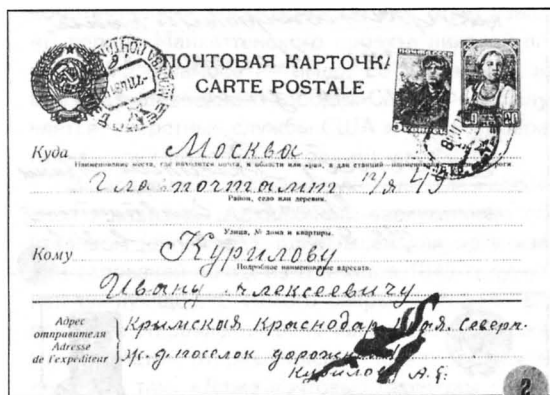 ПОЧТОВАЯ КАРТОЧКА
CARTE POSTALE
Куда Москва
Наименование места, где находится почта, и области или края, а для станций
Главпочтамт п/я 49
Район, село или деревня.
Улица, № дома и квартиры.
Кому Курилову
Подробное наименование адресата.
Ивану Алексеевичу
Адрес отправителя
Adresse de l'expéditeur
Крымская Краснодар. Северн.
ж.д. поселок
А.
2